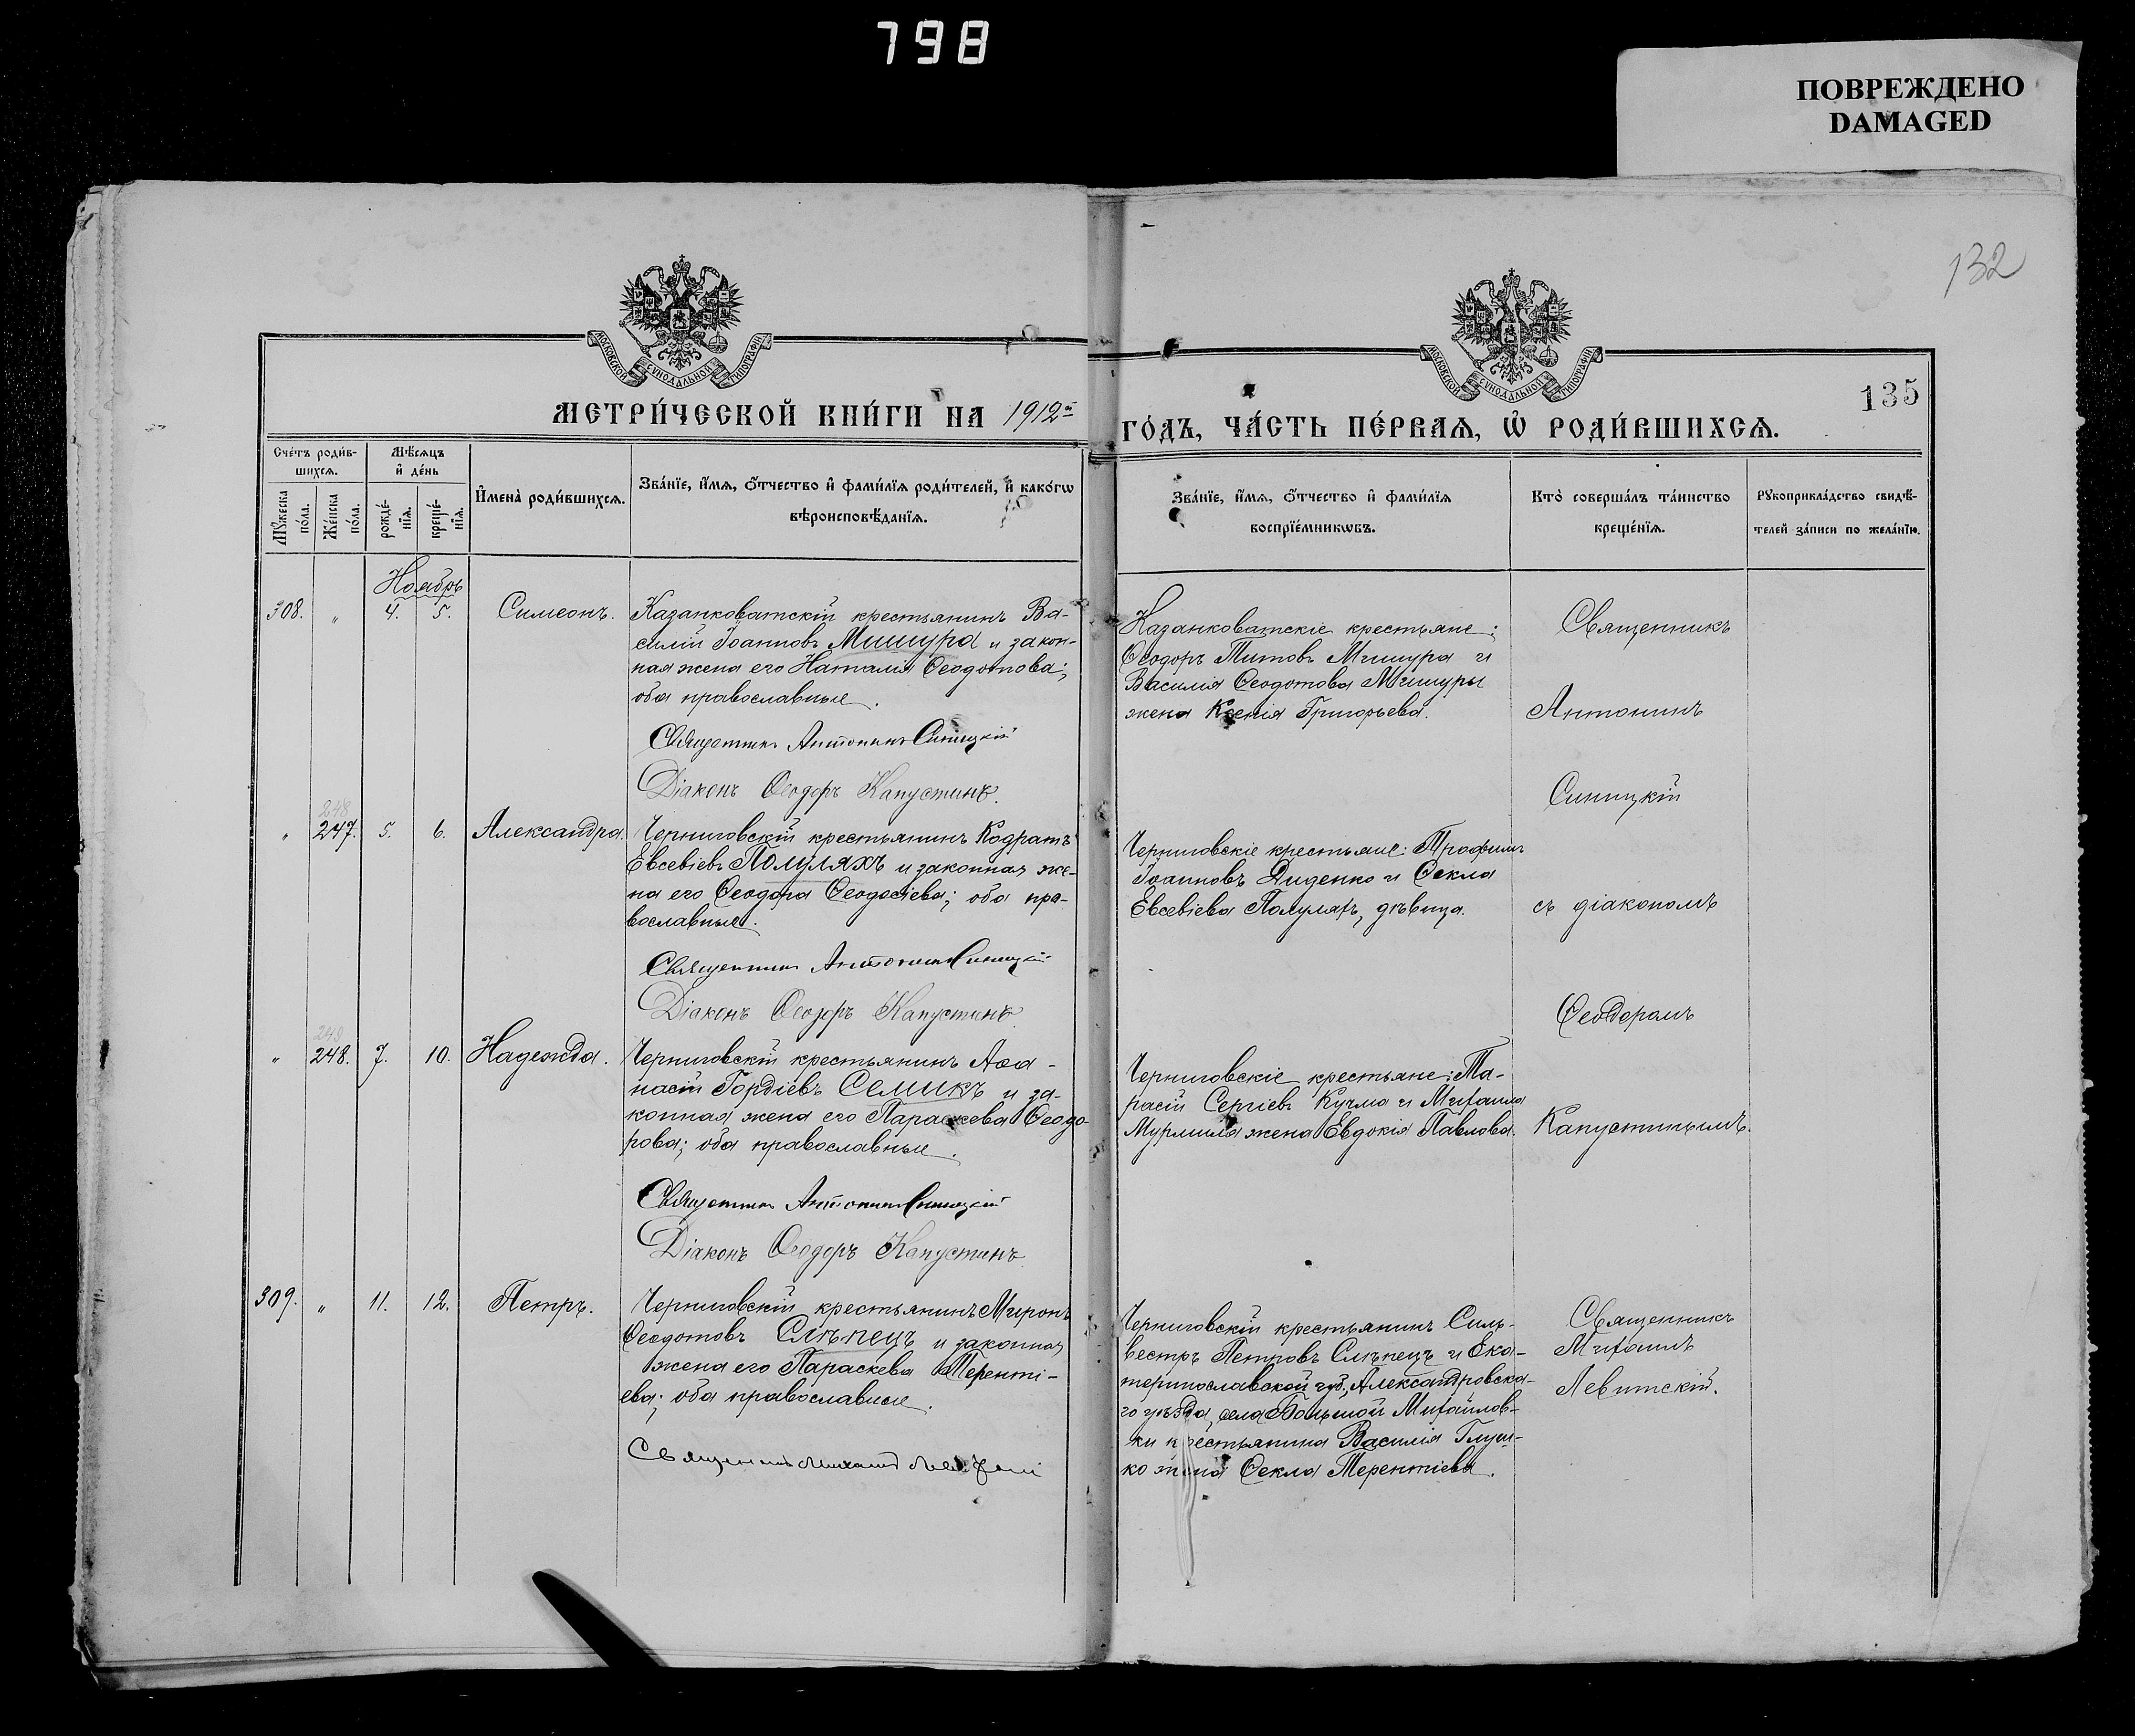 798
ПОВРЕЖДЕНО
DAMAGED
132
МОСКОВСКОЙ СѴНОДАЛЬНОЙ ТИПОГРАФІИ
МОСКОВСКОЙ СѴНОДАЛЬНОЙ ТИПОГРАФІИ
135
МЕТРИ́ЧЕСКОЙ КНИ́ГИ НА 1912й
ГО́ДЪ, ЧА́СТЬ ПЕ́РВАѦ, Ѡ҆ РОДИ́ВШИХСѦ.
Сче́тъ роди́в-
шихсѧ.
Мѣ́сѧцъ
и҆ де́нь
Мꙋ́жеска
по́ла.
Же́нска
по́ла.
рожде́-
нїѧ.
креще́-
нїѧ.
И҆мена̀ роди́вшихсѧ.
Зва́нїе, и҆́мѧ, ѻ҆́тчество и҆ фами́лїѧ роди́телей, и҆ како́гѡ
вѣроисповѣ́данїѧ.
Зва́нїе, и҆́мѧ, ѻ҆́тчество и҆ фами́лїѧ
воспрїе́мникѡвъ.
Кто̀ соверша́лъ та́инство
креще́нїѧ.
Рꙋкоприкла́дство свидѣ́-
телей за́писи по жела́нїю.
Ноябрь
308. " 4. 5. Симеонъ.
Казанковатскій крестьянинъ Ва-
силій Іоанновъ Мишура и закон-
ная жена его Наталія Ѳеодотова;
оба православные.
Священникъ Антонинъ Синицкій
Діаконъ Ѳеодоръ Капустинъ.
Казанковатскіе крестьяне:
Ѳеодоръ Титовъ Мишура и
Василія Ѳеодотова Мишуры
жена Ксенія Григорьева.
Священникъ
Антонинъ
Синицкій
съ діакономъ
Ѳеодоромъ
Капустинымъ.
248
" 247. 5. 6. Александра.
Черниговскій крестьянинъ Кодратъ
Евсевіевъ Полуляхъ и законная же-
на его Ѳеодора Ѳеодосіева; оба пра-
вославные.
Священникъ Антонинъ Синицкій
Діаконъ Ѳеодоръ Капустинъ
Черниговскіе крестьяне: Трофимъ
Іоанновъ Диденко и Ѳекла
Евсевіева Полуляхъ, дѣвица.
249
" 248. 7. 10. Надежда.
Черниговскій крестьянинъ Аѳа-
насій Гордіевъ Семикъ и за-
конная жена его Параскева Ѳеодо-
рова; оба православные.
Священникъ Антонинъ Синицкій
Діаконъ Ѳеодоръ Капустинъ
Черниговскіе крестьяне: Та-
расій Сергіевъ Кучма и Михаила
Мурмила жена Евдокія Павлова.
309. " 11. 12. Петръ.
Черниговскій крестьянинъ Миронъ
Ѳеодотовъ Слѣпецъ и законная
жена его Параскева Теренті-
ева; оба православные.
Священникъ Михаилъ Левитскій
Черниговскій крестьянинъ Силь-
вестръ Петровъ Слѣпецъ и Ека-
теринославской губ., Александровска-
го уѣзда, села Большой Михайлов-
ки крестьянина Василія Глуш-
ко жена Ѳекла Терентіева.
Священникъ
Михаилъ
Левитскій.